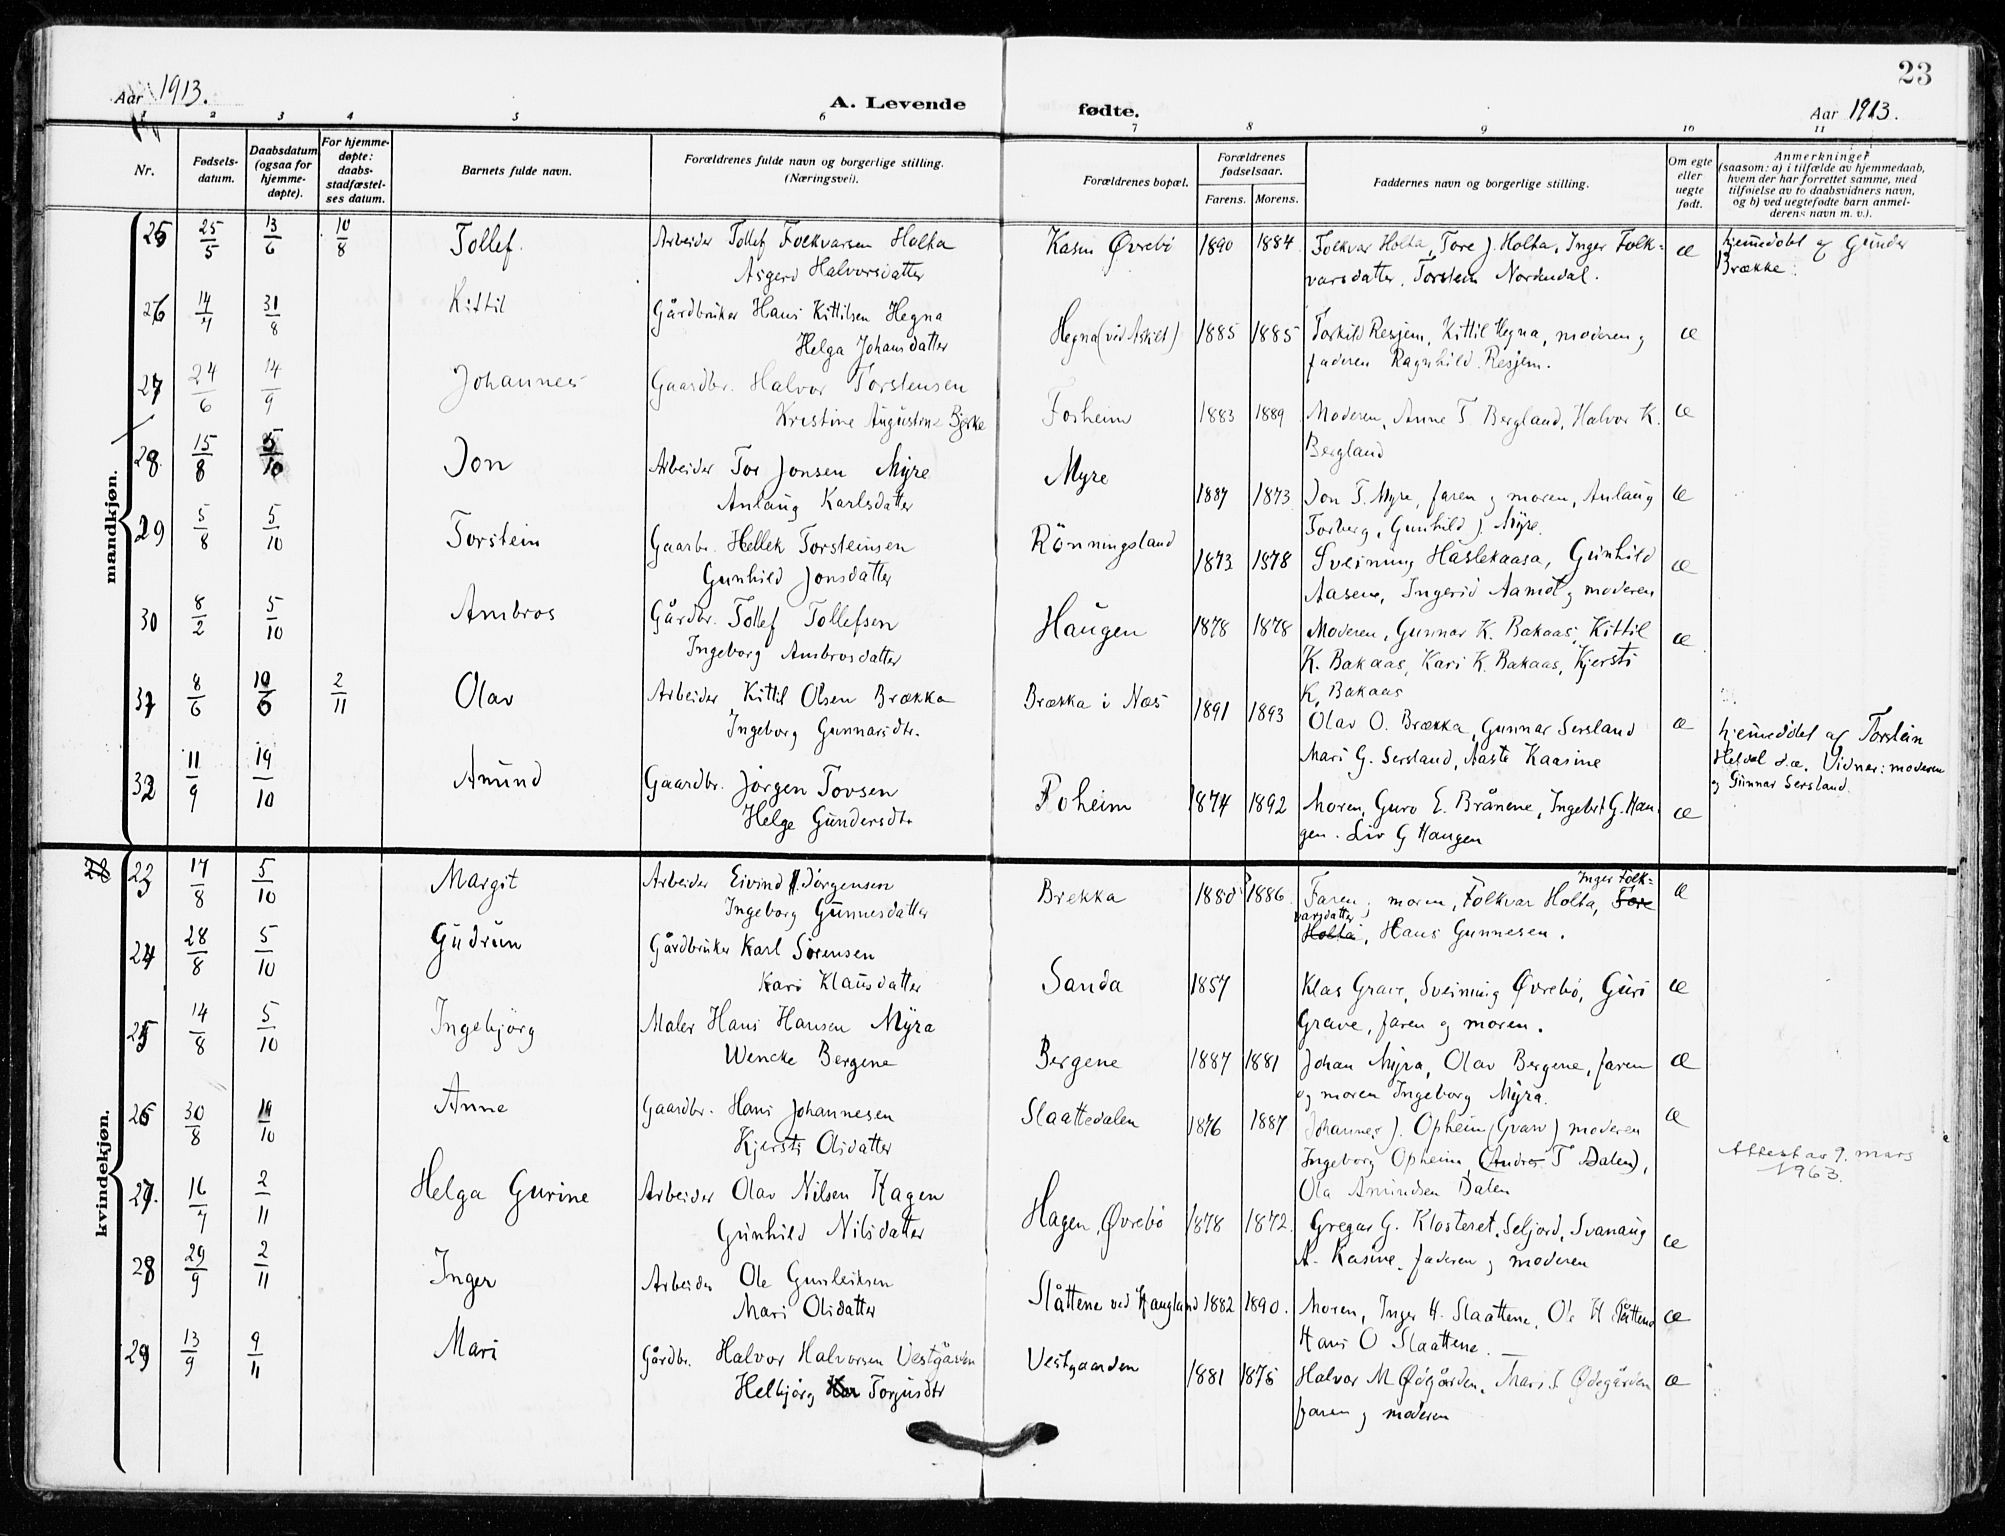 23
Aar 1913.
A. Levende fødte.
Aar 1913.
1 2 3 4 5 6 7 8 9 10 11
Nr.
Fødselsdatum.
Daabsdatum (ogsaa for hjemmedøpte).
For hjemmedøpte: daabsstadfæstelses datum.
Barnets fulde navn.
Forældrenes fulde navn og borgerlige stilling. (Næringsvei).
Forældrenes bopæl.
Forældrenes fødselsaar.
Farens. Morens.
Faddernes navn og borgerlige stilling.
Om egte eller uegte født.
Anmerkninger (saasom: a) i tilfælde av hjemmedaab, hvem der har forrettet samme, med tilføielse av to daabsvidners navn, og b) ved uegtefødte barn anmelderens navn m. v.).
mandkjøn.
25 25/5 13/6 10/8 Tollef. Arbeider Tollef Folkvarsen Holta Kasin Øvrebø 1890 1884 Folkvar Holta, Tore J. Holta, Inger Folk= æ hjemedøbt af Gunder
Asgerd Halvorsdatter varsdatter, Torstein Nordendal. Brække.
26 14/7 31/8 Kittil Gårdbruker Hans Kittilsen Hegna Hegna (ved Askilt) 1885 1885 Torkild Resjem, Kittil Hegna, moderen og æ
Helga Johansdatter faderen Ragnhild Resjem.
27 24/6 14/9 Johannes Gaardbr. Halvor Torstensen Forheim 1883 1889 Moderen, Anne T. Bergland, Halvor K. æ
Kristine Augustine Bjerke Bergland
28. 15/8 5/10 Jon Arbeider Tor Jonsen Myre Myre 1887 1873 Jon T. Myre, faren og moren, Anlaug æ
Anlaug Karlsdatter Torberg, Gunhild J. Myre.
29 5/8 5/10 Torstein Gaarbr. Hellek Torsteinsen Rönningsland 1873 1878 Sveinung Haslekaasa, Gunhild æ
Gunhild Jonsdatter Aasene, Ingerid Aamot og moderen
30 8/2 5/10 Ambros Gårdbr. Tollef Tollefsen Haugen 1878 1878 Moderen, Gunnar K. Bakaas, Kittil æ
Ingeborg Ambrosdatter K. Bakaas, Kari K. Bakaas, Kjersti
K. Bakaas
31 8/6 10/6 2/11 Olav Arbeider Kittil Olsen Brækka Brækka i Næs 1891 1893 Olav O. Brækka, Gunnar Sersland æ hjemedøbt af Torstein
Ingeborg Gunnarsdtr. Mari G. Sersland, Aaste Kaasine Vidner: moderen
og Gunnar Sersland.
32 11/9 19/10 Amund Gaardbr. Jörgen Tovsen Poheim 1874 1892 Moren, Guro E. Brånene, Ingebrt G. Hau- æ
Helge Gundersdtr gen. Liv G Haugen
kvindekjøn.
23 17/8 5/10 Margit Arbeider Eivind Jörgensen Brekka 1880 1886 Faren, moren, Folkvar Holta, Inger Folk= Tore æ
Ingeborg Gunnesdatter varsdatter Holta, Hans Gunnesen.
24 28/8 5/10 Gudrun Gårdbruker Karl Sørensen Sanda 1857 Klas Grave, Sveinung Øvrebø, Guri æ
Kari Klausdatter Grave, faren og moren.
25 14/8 5/10 Ingebjörg Maler Hans Hansen Myra Bergene 1887 1881 Johan Myra, Olav Bergene, faren æ
Wencke Bergene og moren Ingeborg Myra.
26 30/8 19/10 Anne Gaardbr. Hans Johannesen Slaattedalen 1876 1887 Johannes J. Opheim (Gvarv) moderen æ
Kjersti Olsdatter Ingeborg Opheim (Andres T Dalen), Attest av 9. mars
Ola Amundsen Dalen 1963.
27. 16/7 2/11 Helga Gurine Arbeider Olav Nilsen Hagen Hagen, Øvrebø 1878 1872. Gregar G. Klosteret, Seljord, Svanaug æ
Gunhild Nilsdatter A. Kasine, faderen og moderen
28 29/9 2/11 Inger Arbeider Ole Gunleiksen Slåttene ved Haugland 1882 1890. Moren, Inger H. Slaattene, Ole H Slåttene æ
Mari Olsdatter Hans O Slaattene.
29 13/9 9/11 Mari Gårdbr. Halvor Halvorsen Vestgården Vestgaarden 1881 1875 Halvor M Ødegården, Mari S Ødegården æ
Helbjörg Torjusdtr faren og moderen